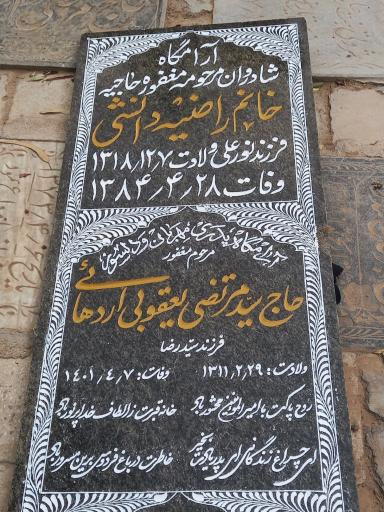 آرامگاه
شادروان مرحومه مغفوره حاجیه
خانم راضیه دانشی
فرزند نورعلی ولادت ۱۳۱۸/۱۲۷
وفات ۱۳۸۴/۴/۲۸
آرامگاه پدری مهربان و دلسوز
مرحوم مغفور
حاج سید مرتضی یعقوبی اردهائی
فرزند سید رضا
ولادت: ۱۳۱۱/۲/۲۹ وفات: ۱۴۰۱/۴/۷
روح پاکت با امیرالمومنین محشور باد خانه قبرت ز الطاف خدا پر نور باد
ای چراغ زندگانی ای پدر یادت بخیر خاطرت در باغ فردوس برین مسرور باد